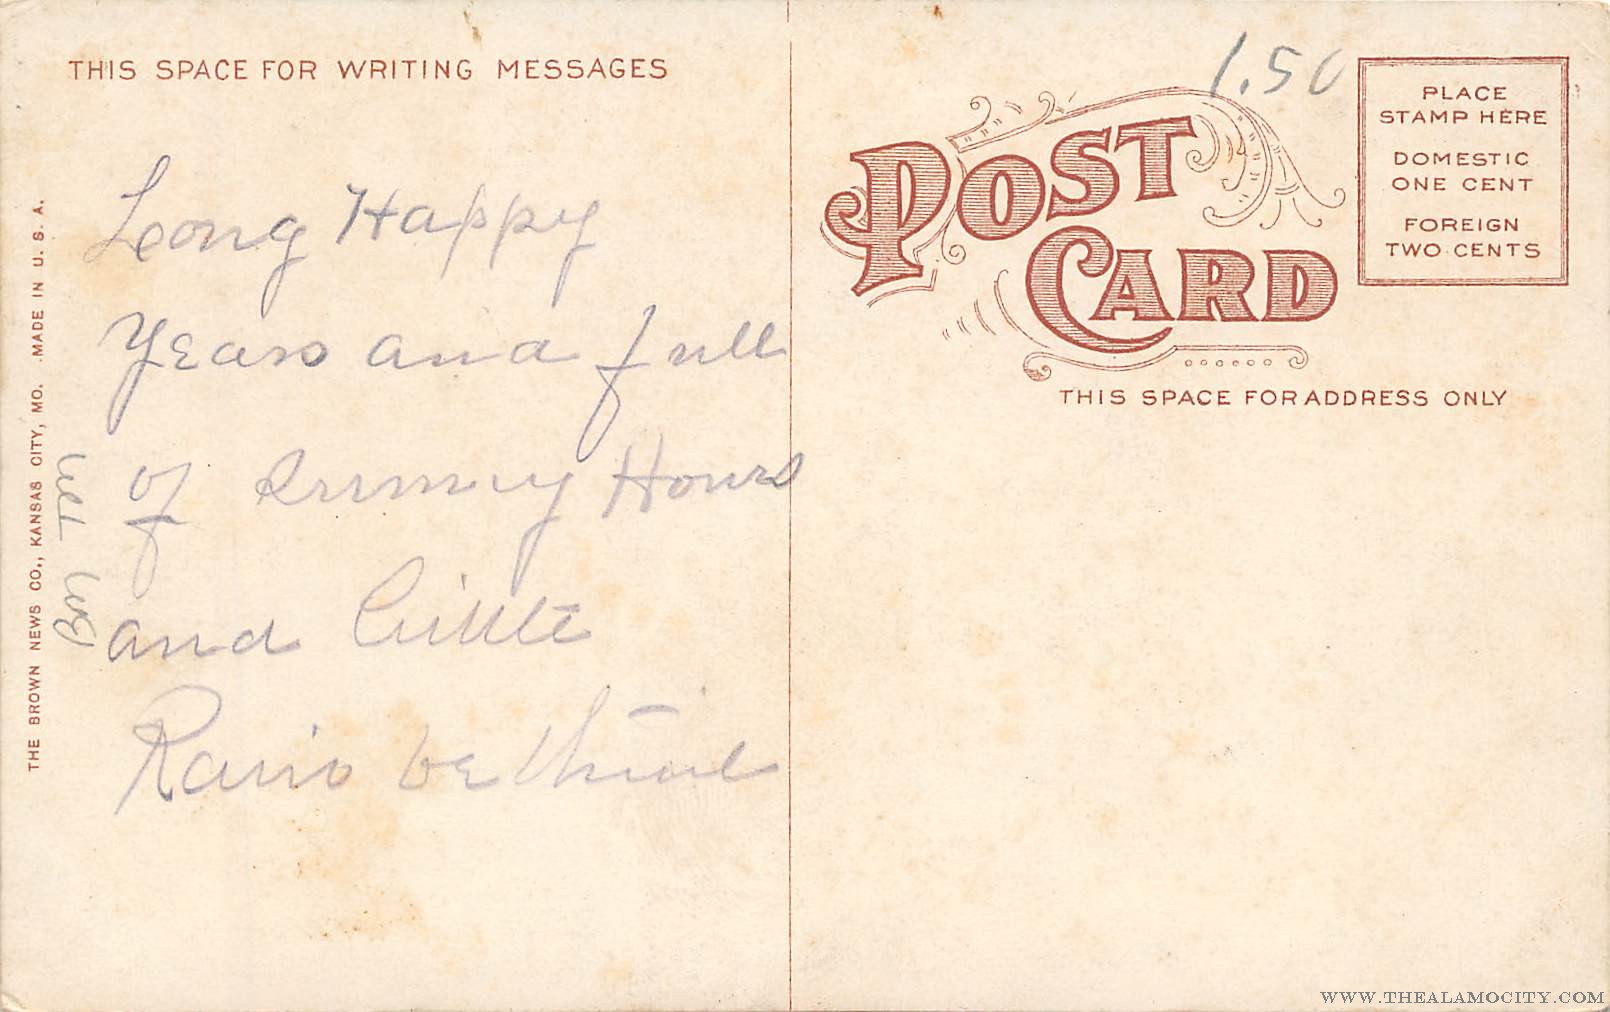 THIS SPACE FOR WRITING MESSAGES
Long Happy
Years and full
of Sunny Hours
and Little
Rain be thine
THE BROWN NEWS CO., KANSAS CITY, MO. MADE IN U. S. A.
1.50
POST
CARD
PLACE
STAMP HERE
DOMESTIC
ONE CENT
FOREIGN
TWO CENTS
THIS SPACE FOR ADDRESS ONLY
WWW.THEALAMOCITY.COM